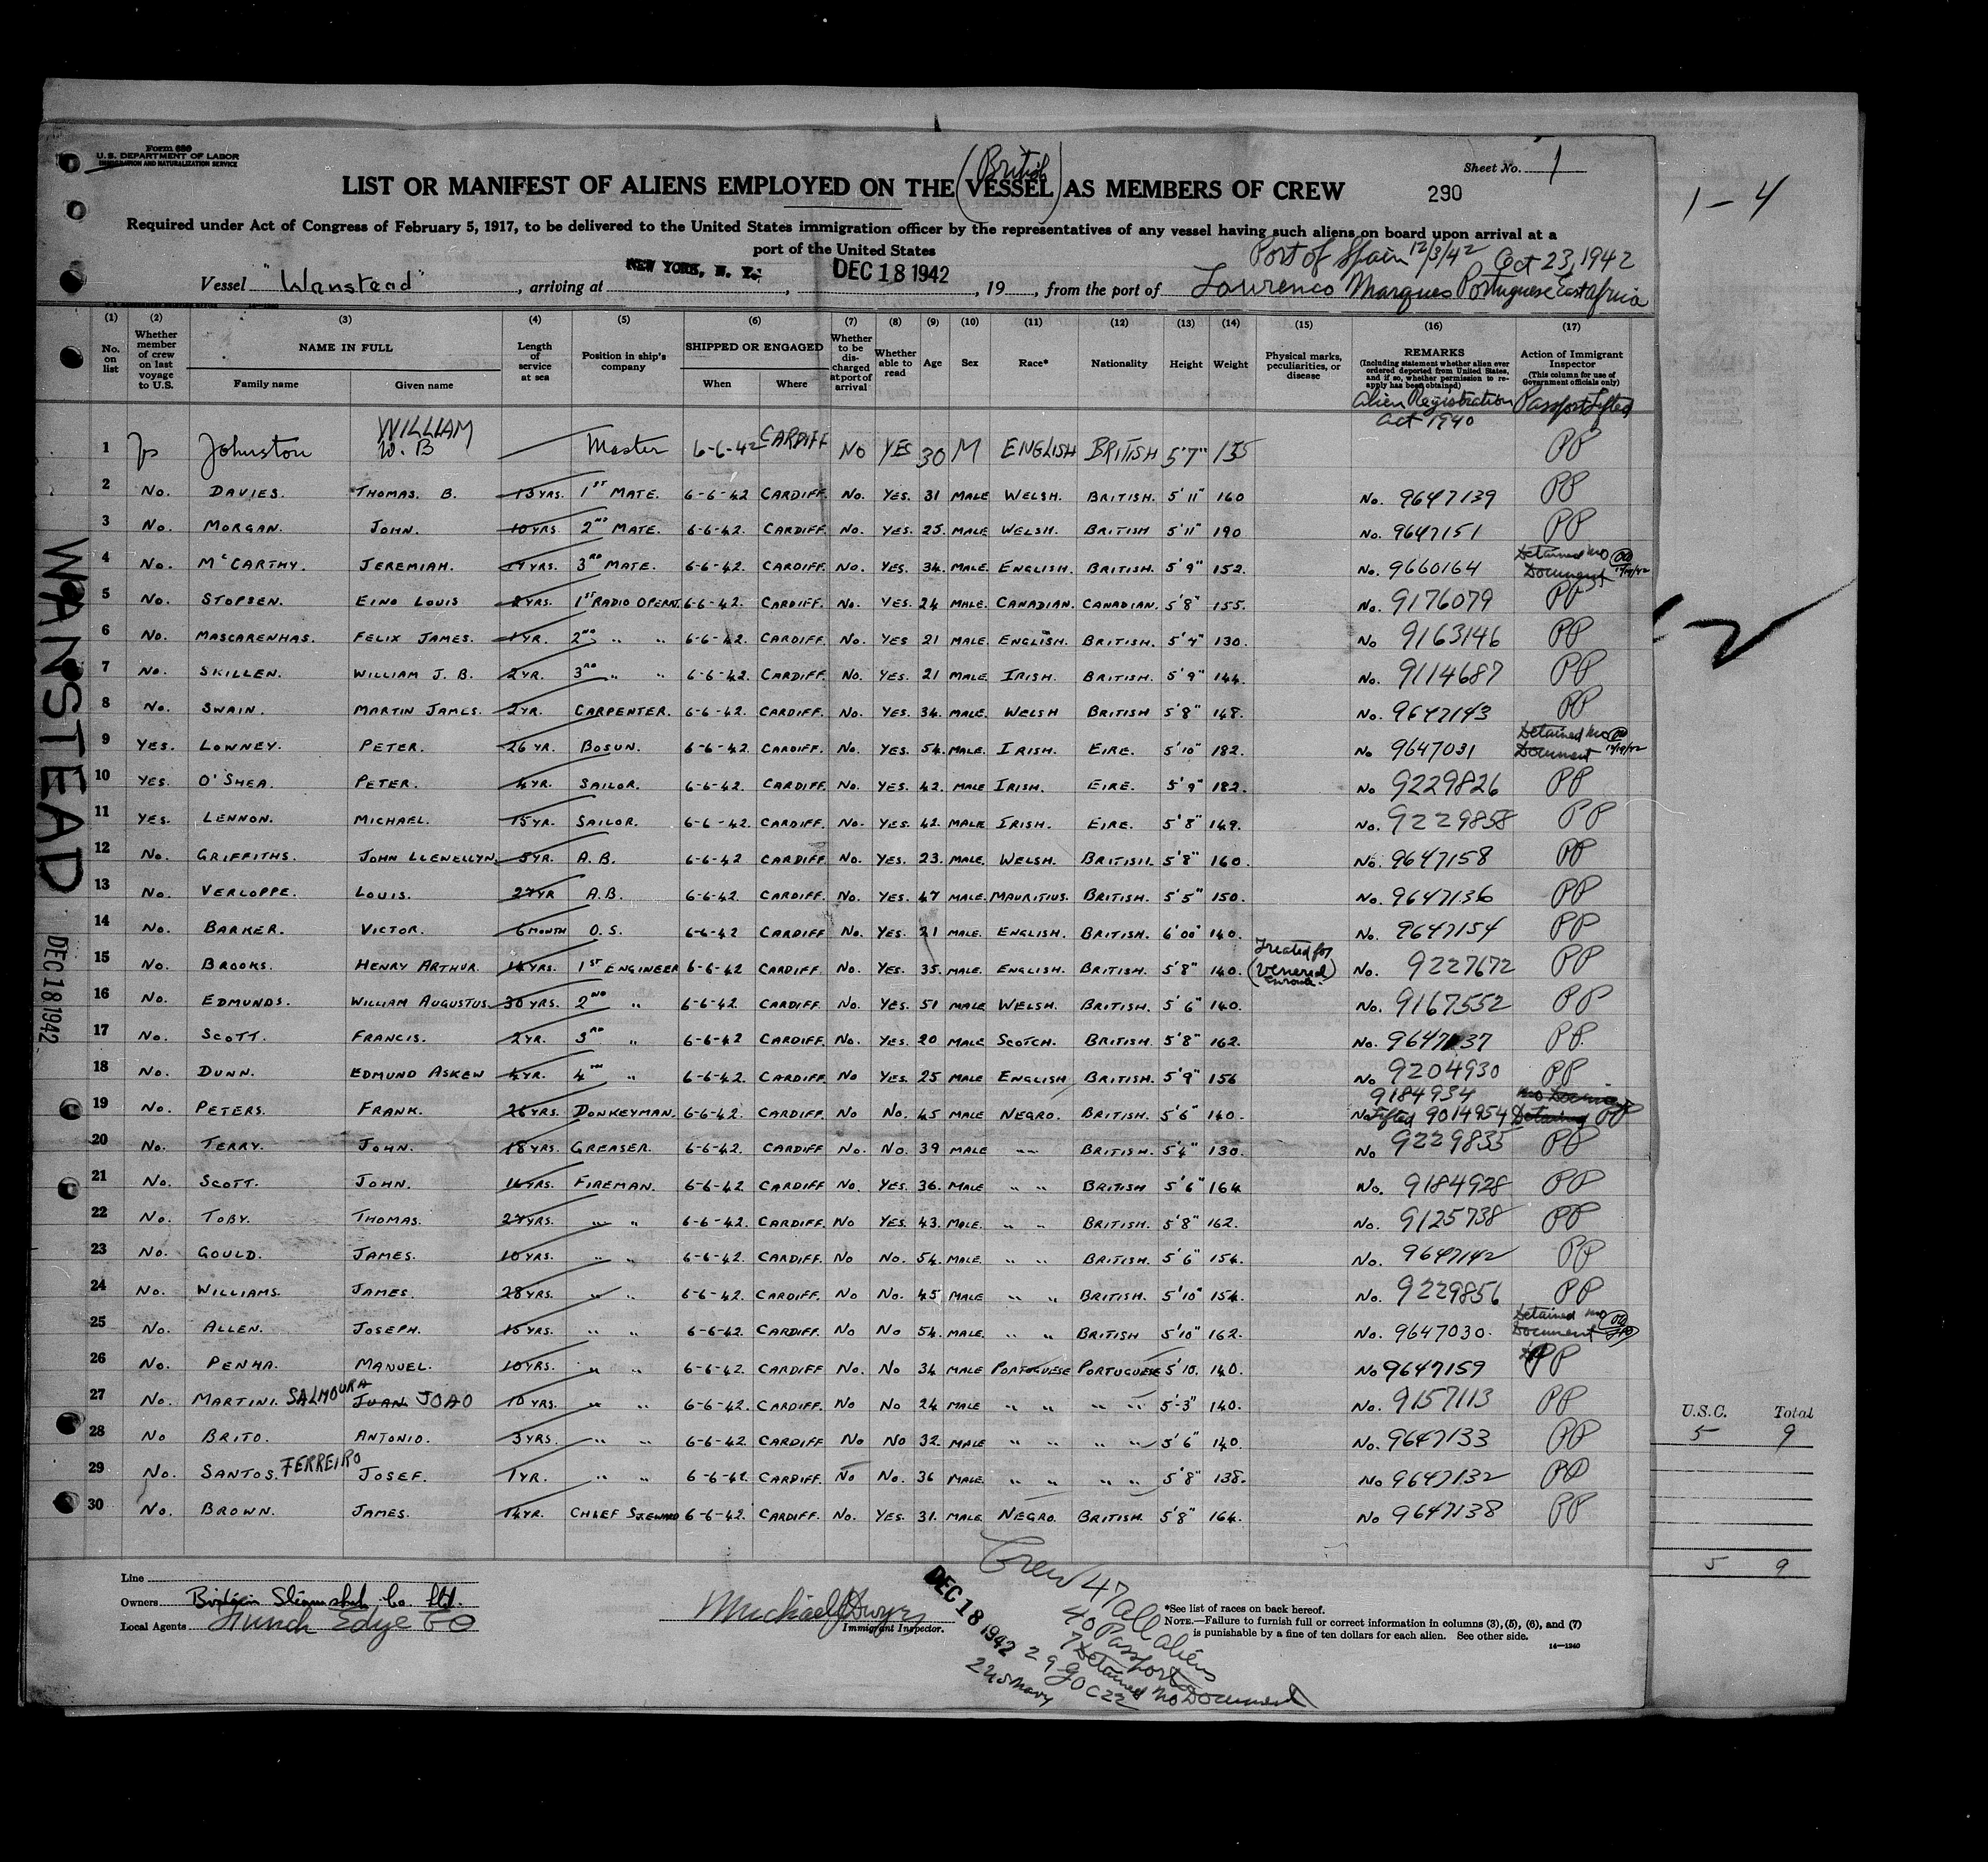 Form 680
U.S. DEPARTMENT OF LABOR
IMMIGRATION AND NATURALIZATION SERVICE
Sheet No. 1
1 - 4
(British)
LIST OR MANIFEST OF ALIENS EMPLOYED ON THE VESSEL AS MEMBERS OF CREW
290
Required under Act of Congress of February 5, 1917, to be delivered to the United States immigration officer by the representatives of any vessel having such aliens on board upon arrival at a
port of the United States
Port of Spain 12/3/42 Oct 23, 1942
Vessel "Wanstead", arriving at NEW YORK, N. Y., DEC 18 1942, 19, from the port of Lourenco Marques Portuguese East Africa
(1) (2) (3) (4) (5) (6) (7) (8) (9) (10) (11) (12) (13) (14) (15) (16) (17)
No. on list
Whether member of crew on last voyage to U.S.
NAME IN FULL
Family name Given name
Length of service at sea
Position in ship's company
SHIPPED OR ENGAGED
When Where
Whether to be discharged at port of arrival
Whether able to read
Age Sex Race* Nationality Height Weight
Physical marks, peculiarities, or disease
REMARKS
(Including statement whether alien ever ordered deported from United States, and if so, whether permission to reapply has been obtained)
Alien Registration Act 1940
Action of Immigrant Inspector
(This column for use of Government officials only)
Passport Lifted
1 Johnston WILLIAM W. B Master 6-6-42 CARDIFF NO YES 30 M ENGLISH BRITISH 5'7" 135 PP
2 No. DAVIES. THOMAS. B. 13 YRS. 1ST MATE. 6-6-42 CARDIFF. No. YES. 31 MALE WELSH. BRITISH. 5'11" 160 No. 9647139 PP
3 No. MORGAN. JOHN. 10 YRS. 2ND MATE. 6-6-42. CARDIFF No. YES. 25. MALE WELSH. BRITISH 5'11" 190 No. 9647151 PP
4 No. McCARTHY. JEREMIAH. YRS. 3RD MATE. 6-6-42. CARDIFF. No. YES. 34. MALE. ENGLISH. BRITISH. 5'9" 152. No. 9660164 Detained no Document
5 No. STOPSEN. EINO LOUIS 2 YRS. 1ST RADIO OPERAT. 6-6-42. CARDIFF. No. YES. 24 MALE. CANADIAN. CANADIAN. 5'8" 155. No. 9176079 PP
6 No. MASCARENHAS. FELIX JAMES. 1 YR. 2ND " " 6-6-42. CARDIFF. No. YES 21 MALE. ENGLISH. BRITISH. 5'4" 130. No 9163146 PP
7 No. SKILLEN. WILLIAM J. B. 2 YR. 3RD " " 6-6-42. CARDIFF No. YES. 21 MALE. IRISH. BRITISH. 5'9" 144. No. 9114687 PP
8 No. SWAIN. MARTIN JAMES. 2 YR. CARPENTER. 6-6-42. CARDIFF. No. YES. 34. MALE. WELSH BRITISH 5'8" 148. No. 9647143 PP
9 YES. LOWNEY. PETER. 26 YR. BOSUN. 6-6-42 CARDIFF. No. YES. 54. MALE. IRISH. EIRE. 5'10" 182. No 9647031 Detained no Document
10 YES. O'SHEA. PETER. 4 YR. SAILOR. 6-6-42. CARDIFF. No. YES. 42. MALE IRISH. EIRE. 5'9" 182. No 9229826 PP
11 YES. LENNON. MICHAEL. 15 YR. SAILOR. 6-6-42. CARDIFF. No. YES. 42. MALE IRISH. EIRE. 5'8" 149. No. 9229858 PP
12 No. GRIFFITHS. JOHN LLEWELLYN. 5 YR. A.B. 6-6-42 CARDIFF No. YES. 23. MALE. WELSH. BRITISH. 5'8" 160. No. 9647158 PP
13 No. VERLOPPE. LOUIS. 27 YR A.B. 6-6-42. CARDIFF. No. YES. 47 MALE. MAURITIUS. BRITISH. 5'5" 150. No. 9647136 PP
14 No. BARKER. VICTOR. 6 MONTH O.S. 6-6-42 CARDIFF No. YES. 21 MALE. ENGLISH. BRITISH. 6'00" 140. No. 9647154 PP
15 No. BROOKS. HENRY ARTHUR. 14 YRS. 1ST ENGINEER 6-6-42 CARDIFF No. YES. 35. MALE. ENGLISH. BRITISH. 5'8" 140. Treated for (Venereal) Enroute. No. 9227672 PP
16 No. EDMUNDS. WILLIAM AUGUSTUS. 30 YRS. 2ND " 6-6-42. CARDIFF. No. YES. 51 MALE WELSH. BRITISH. 5'6" 140. No. 9167552 PP
17 No. SCOTT. FRANCIS. 2 YR. 3RD " 6-6-42 CARDIFF. No. YES. 20 MALE SCOTCH. BRITISH. 5'8" 162. No. 9647137 PP.
18 No. DUNN. EDMUND ASKEW 4 YR. 4TH " 6-6-42. CARDIFF. No YES. 25 MALE ENGLISH BRITISH. 5'9" 156 No 9204930 PP
19 No. PETERS. FRANK. 26 YRS. DONKEYMAN. 6-6-42. CARDIFF. No No. 45 MALE NEGRO. BRITISH. 5'6" 140. 9184934 No Lifted 9014954 No Document Detained PP
20 No. TERRY. JOHN. 18 YRS. GREASER. 6-6-42. CARDIFF No. No. 39 MALE " " BRITISH. 5'4" 130. No 9229835 PP
21 No. SCOTT. JOHN. 16 YRS. FIREMAN. 6-6-42 CARDIFF No. YES. 36. MALE " " BRITISH 5'6" 164 No. 9184928 PP
22 No. TOBY. THOMAS. 27 YRS. " " 6-6-42. CARDIFF. No YES. 43. MALE. " " BRITISH. 5'8" 162. No. 9125738 PP
23 No. GOULD. JAMES. 10 YRS. " " 6-6-42. CARDIFF. No No. 54. MALE. " " BRITISH. 5'6" 154. No. 9647142 PP
24 No. WILLIAMS. JAMES. 28 YRS. " " 6-6-42. CARDIFF. No No. 45 MALE " " BRITISH. 5'10" 154. No. 9229856 PP
25 No. ALLEN. JOSEPH. 15 YRS. " " 6-6-42. CARDIFF. No No 54. MALE. " " BRITISH 5'10" 162. No. 9647030. Detained no Document
26 No. PENHA. MANUEL. 10 YRS. " " 6-6-42. CARDIFF No. No 34 MALE PORTUGUESE PORTUGUESE 5'10. 140. No 9647159 PP
27 No. MARTINI. SALMOURA JUAN JOAO 10 YRS. " " 6-6-42. CARDIFF. No No 24 MALE " " " " 5'-3" 140. No. 9157113 PP
28 No BRITO. ANTONIO. 3 YRS. " " 6-6-42. CARDIFF No No 32. MALE " " " " 5'6" 140. No. 9647133 PP
29 No. SANTOS. FERREIRO JOSEF. 1 YR. " " 6-6-42. CARDIFF. No No. 36 MALE. " " " " 5'8" 138. No 9647132 PP
30 No. BROWN. JAMES. 14 YR. CHIEF STEWARD 6-6-42. CARDIFF. No. YES. 31. MALE NEGRO. BRITISH. 5'8" 164. No 9647138 PP
WANSTEAD
DEC 18 1942
2
U.S.C. Total
5 9
5 9
Line
Owners Steamship Co. Ltd.
Local Agents Funch Edye Co
Michael J Dwyer
Immigrant Inspector.
DEC 18 1942
Crew 47 all aliens
40 Passports
7 Detained no Document
*See list of races on back hereof.
NOTE.—Failure to furnish full or correct information in columns (3), (5), (6), and (7)
is punishable by a fine of ten dollars for each alien. See other side.
14—1240